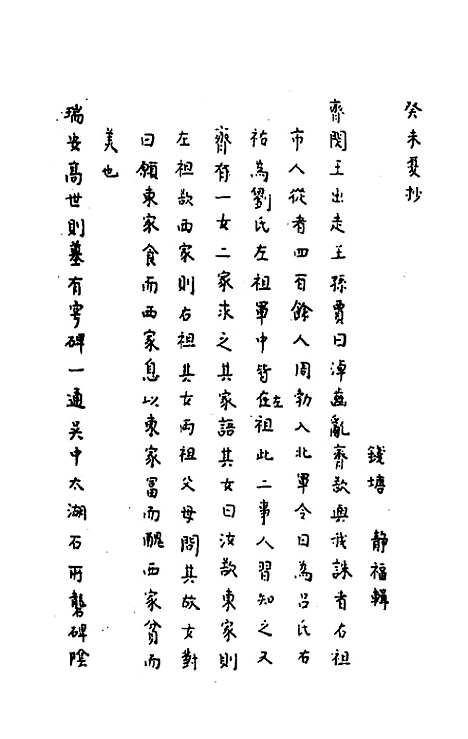 癸未夏抄
錢塘　靜福輯
齊閔王出走王孫賈曰淖齒亂齊欲與我誅者右袒
市人從者四百餘人周勃入北軍令曰為呂氏右
袒為劉氏左袒軍中皆在左袒此二事人習知之又
齊有一女二家求之其家語其女曰汝欲東家則
左袒欲西家則右袒其女兩袒父母問其故女對
曰願東家食而西家息以東家富而醜西家貧而
美也
瑞安高世則墓有穹碑一通吳中太湖石所礱碑陰